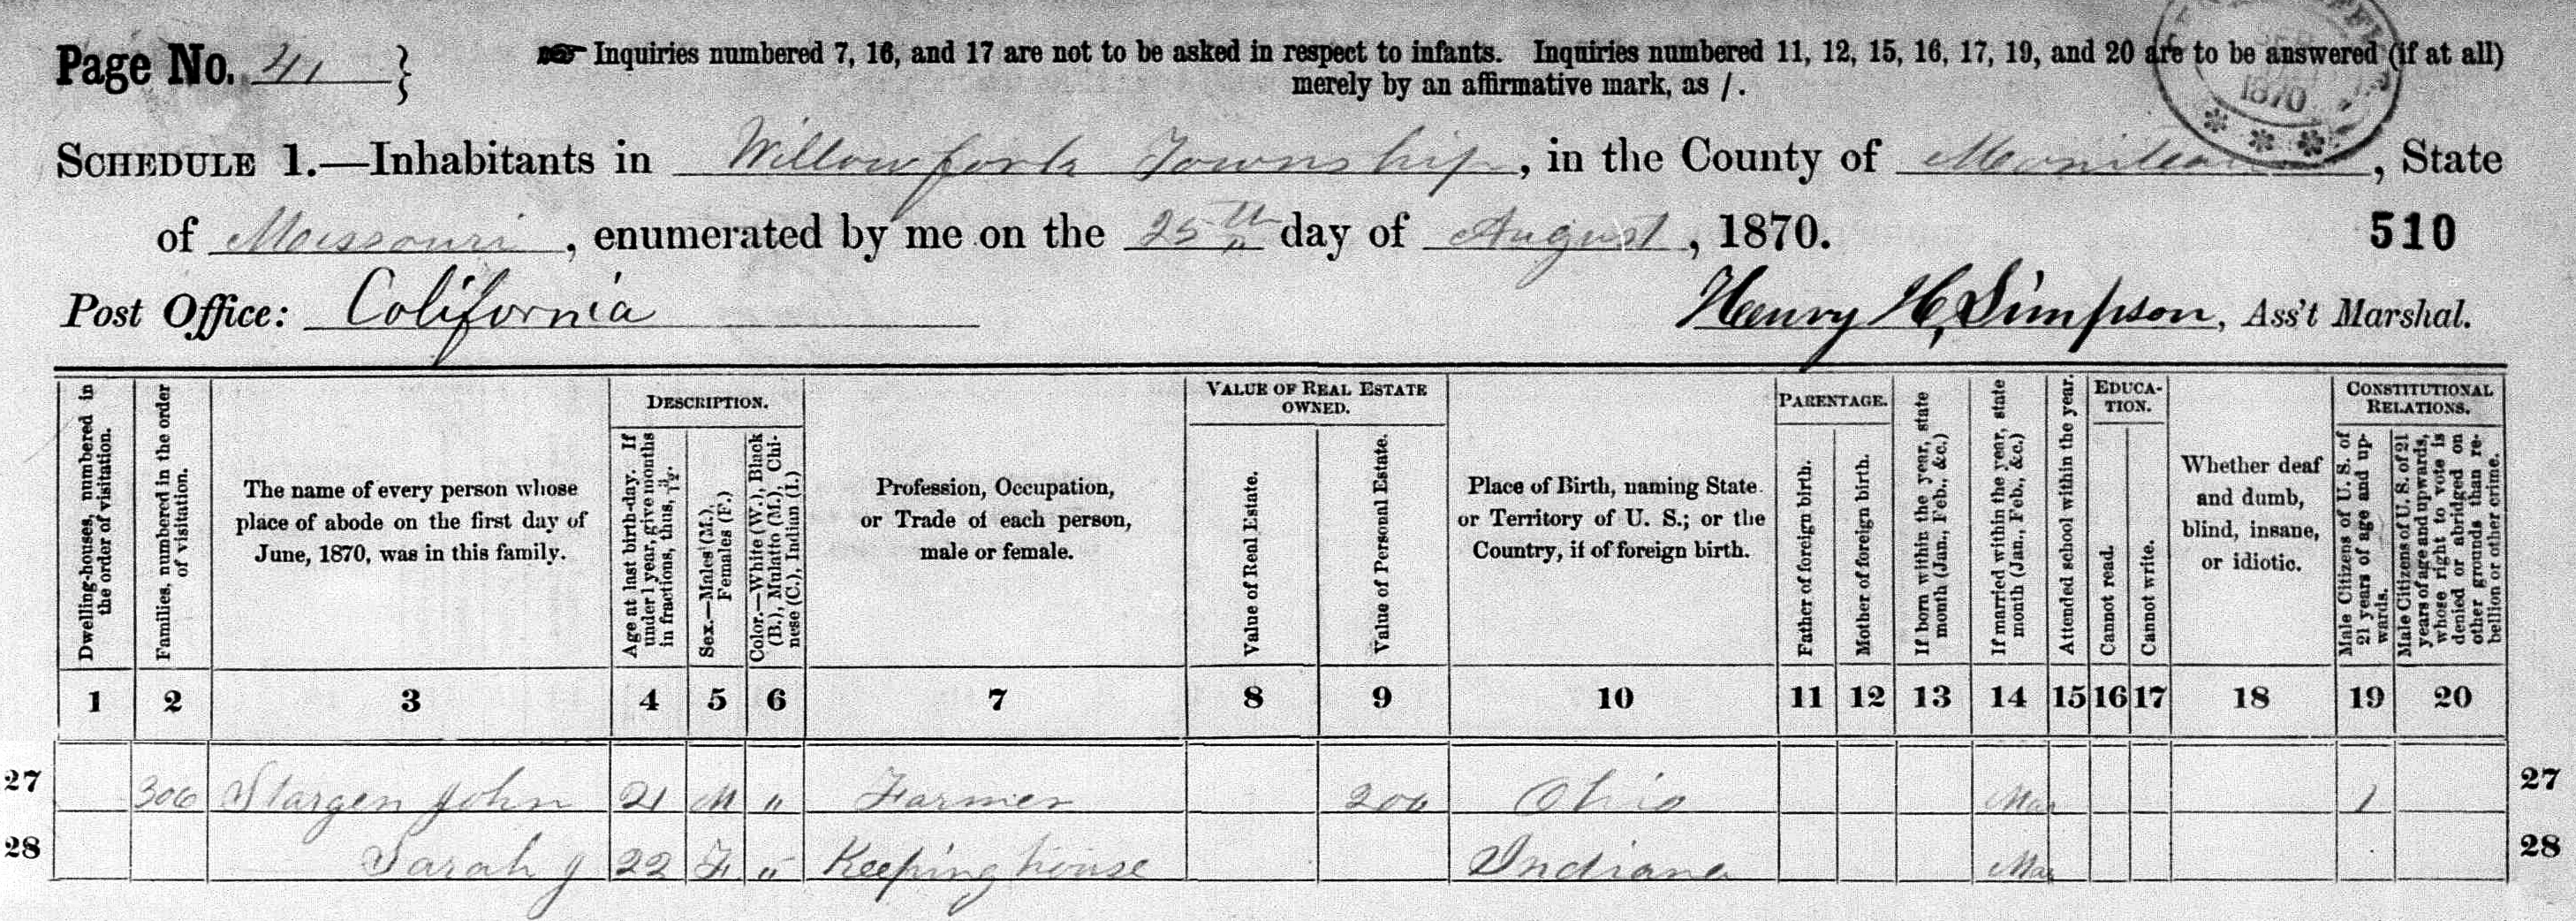 Page No. 41 } Inquiries numbered 7, 16, and 17 are not to be asked in respect to infants. Inquiries numbered 11, 12, 15, 16, 17, 19, and 20 are to be answered (if at all)
merely by an affirmative mark, as /.
1870
SCHEDULE 1.—Inhabitants in Willow fork Township, in the County of Moniteau, State
of Missouri, enumerated by me on the 25th day of August, 1870. 510
Post Office: California Henry H. Simpson, Ass't Marshal.
Dwelling-houses, numbered in the order of visitation.
Families, numbered in the order of visitation.
The name of every person whose
place of abode on the first day of
June, 1870, was in this family.
DESCRIPTION.
Age at last birth-day. If under 1 year, give months in fractions, thus, 3/12.
Sex.—Males (M.), Females (F.)
Color.—White (W.), Black (B.), Mulatto (M.), Chinese (C.), Indian (I.)
Profession, Occupation,
or Trade of each person,
male or female.
VALUE OF REAL ESTATE
OWNED.
Value of Real Estate.
Value of Personal Estate.
Place of Birth, naming State
or Territory of U. S.; or the
Country, if of foreign birth.
PARENTAGE.
Father of foreign birth.
Mother of foreign birth.
If born within the year, state month (Jan., Feb., &c.)
If married within the year, state month (Jan., Feb., &c.)
Attended school within the year.
EDUCA-
TION.
Cannot read.
Cannot write.
Whether deaf
and dumb,
blind, insane,
or idiotic.
CONSTITUTIONAL
RELATIONS.
Male Citizens of U. S. of 21 years of age and upwards.
Male Citizens of U. S. of 21 years of age and upwards, whose right to vote is denied or abridged on other grounds than rebellion or other crime.
1 2 3 4 5 6 7 8 9 10 11 12 13 14 15 16 17 18 19 20
27 306 Stargen John 21 M " Farmer 200 Ohio Mar 1 27
28 Sarah J 22 F " Keeping house Indiana Mar 28